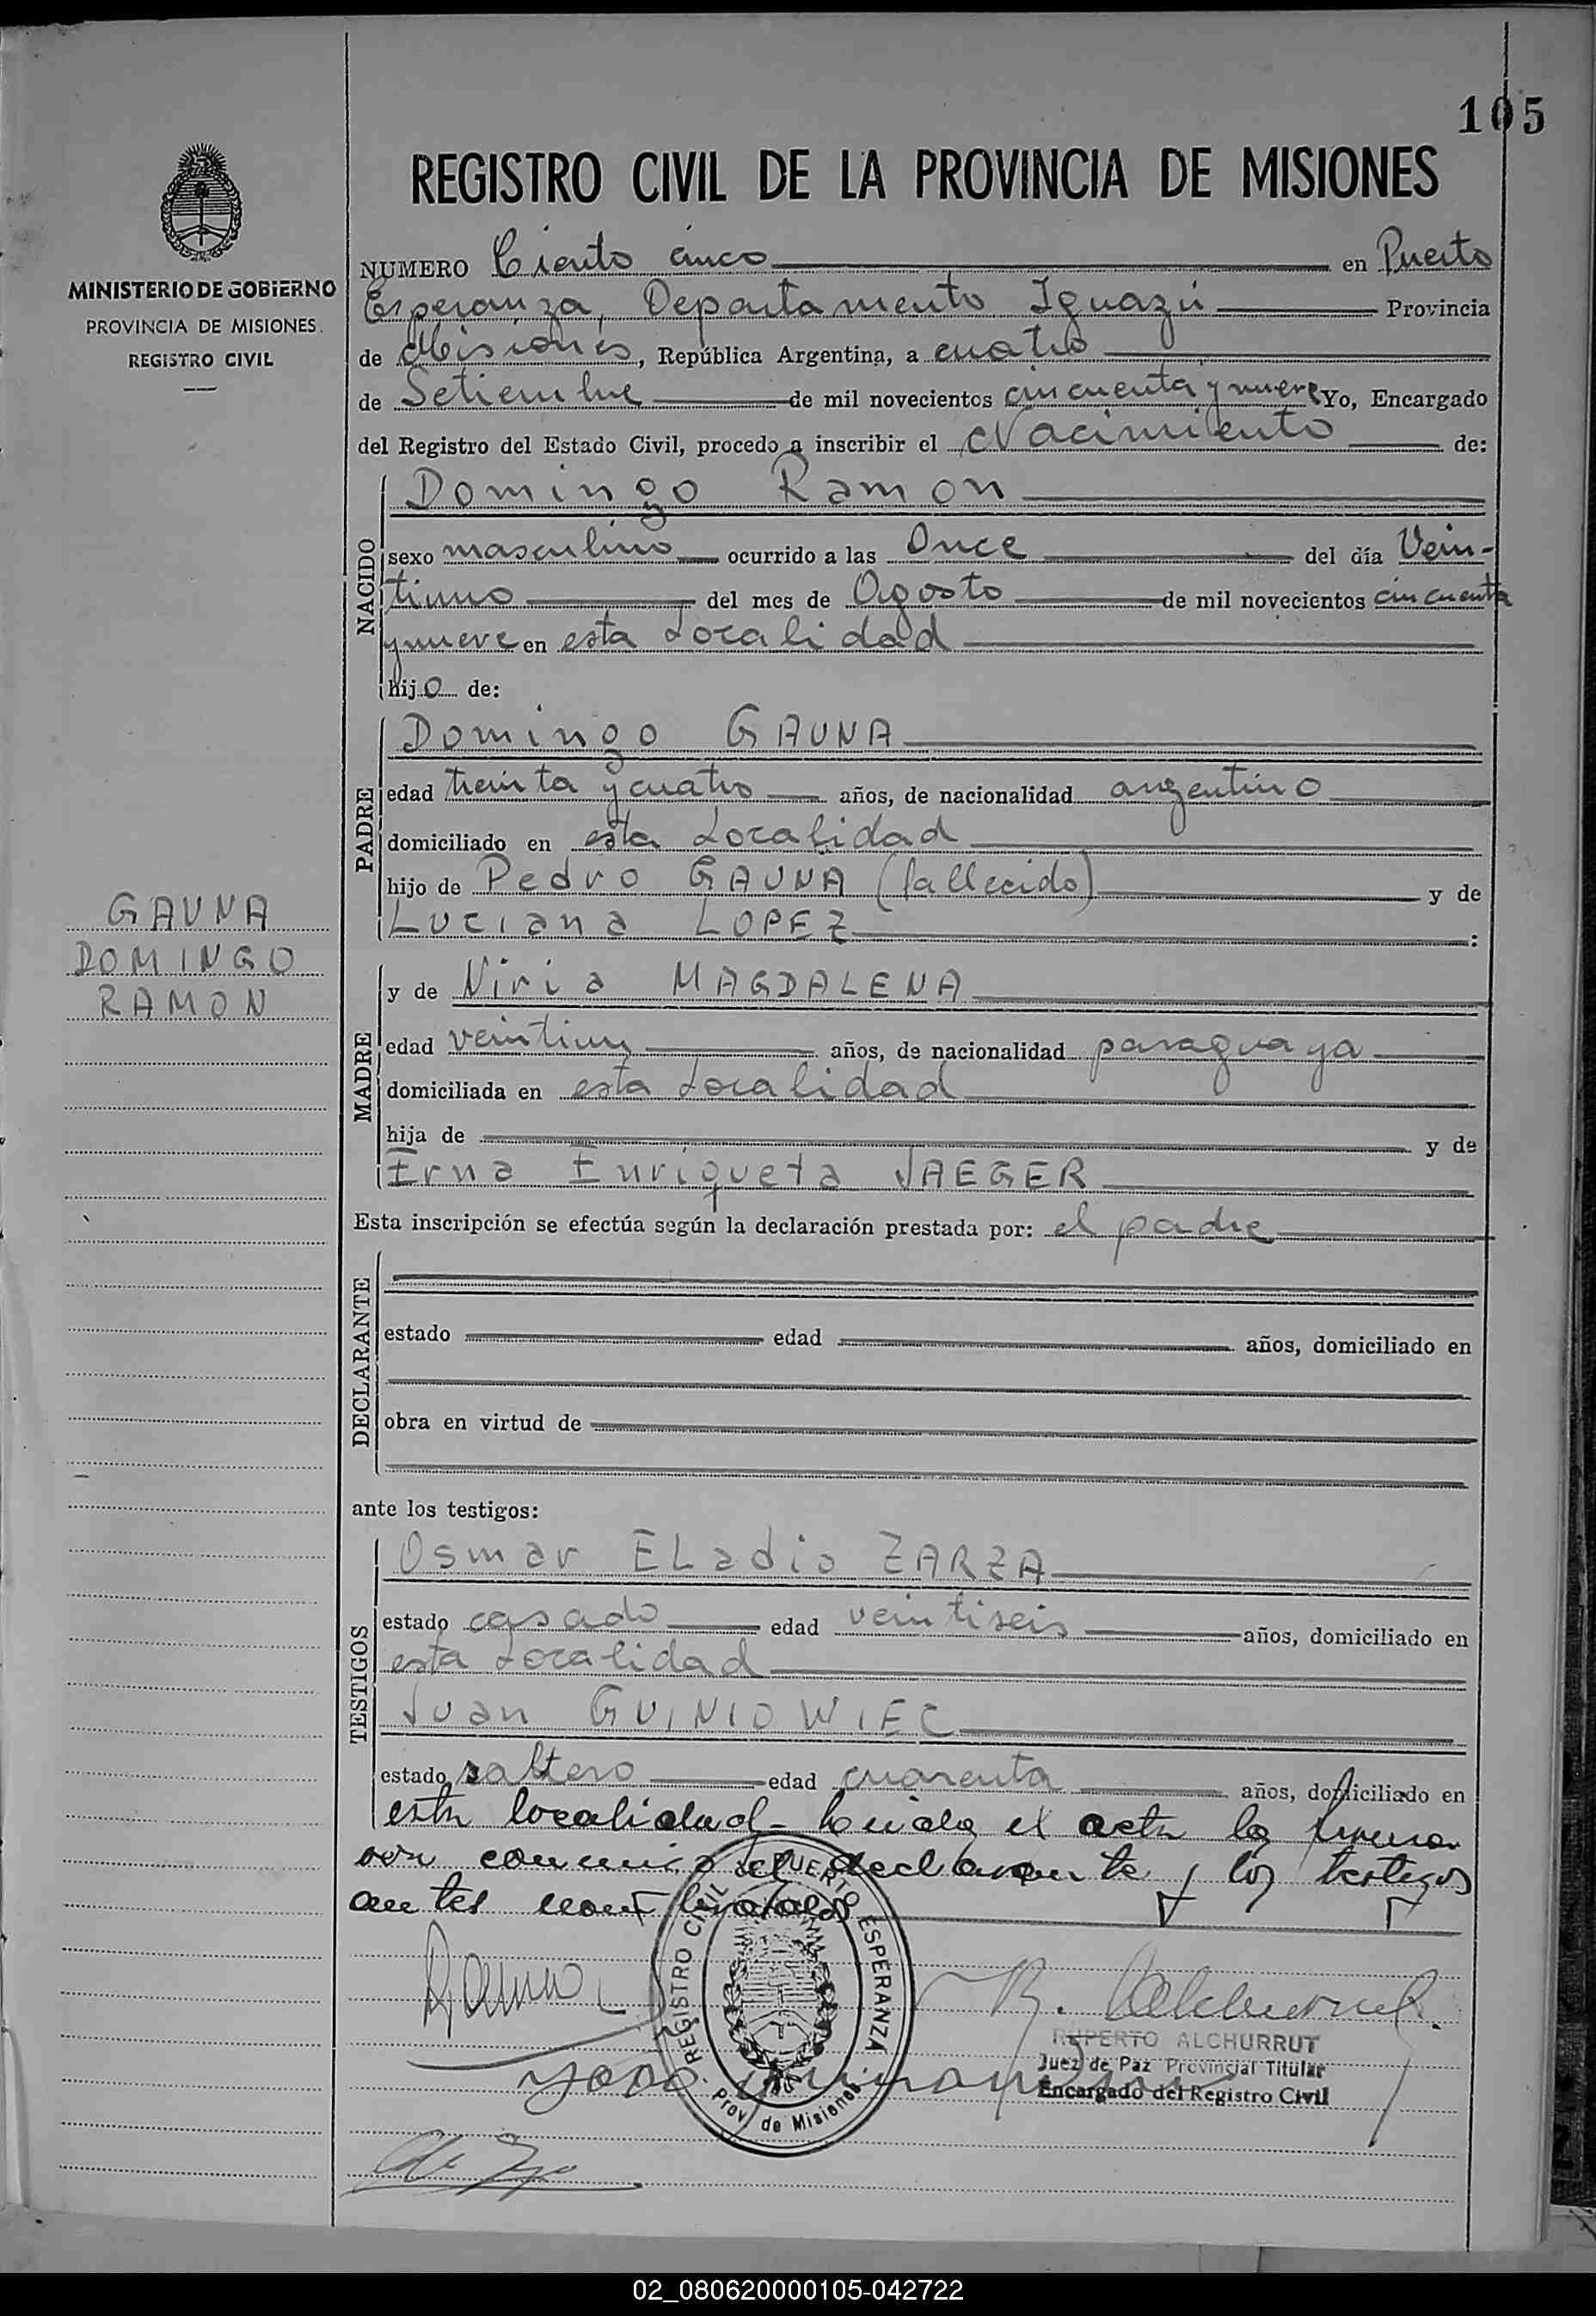 105
REGISTRO CIVIL DE LA PROVINCIA DE MISIONES
MINISTERIO DE GOBIERNO
PROVINCIA DE MISIONES.
REGISTRO CIVIL
NUMERO Ciento cinco en Puerto
Esperanza, Departamento Iguazú Provincia
de Misiones, República Argentina, a cuatro
de Setiembre de mil novecientos cincuenta y nueve Yo, Encargado
del Registro del Estado Civil, procedo a inscribir el Nacimiento de:
NACIDO
Domingo Ramon
sexo masculino ocurrido a las Once del día Vein-
tiuno del mes de Agosto de mil novecientos cincuenta
y nueve en esta Localidad
hijo de:
PADRE
Domingo GAUNA
edad treinta y cuatro años, de nacionalidad argentino
domiciliado en esta Localidad
hijo de Pedro GAUNA (fallecido) y de
Luciana LOPEZ :
GAUNA
DOMINGO
RAMON
MADRE
y de Niria MAGDALENA
edad veintiun años, de nacionalidad paraguaya
domiciliada en esta Localidad
hija de y de
Erna Enriqueta JAEGER
Esta inscripción se efectúa según la declaración prestada por: el padre
DECLARANTE
estado edad años, domiciliado en
obra en virtud de
ante los testigos:
TESTIGOS
Osmar ELadio ZARZA
estado casado edad veintiseis años, domiciliado en
esta Localidad
Juan GUINIOWIEC
estado soltero edad cuarenta años, domiciliado en
esta localidad - Leida el acta la firman
con conmigo el declarante y los testigos
antes nombrados
REGISTRO CIVIL DE PUERTO ESPERANZA
Prov. de Misiones
RUPERTO ALCHURRUT
Juez de Paz Provincial Titular
Encargado del Registro Civil
02_080620000105-042722